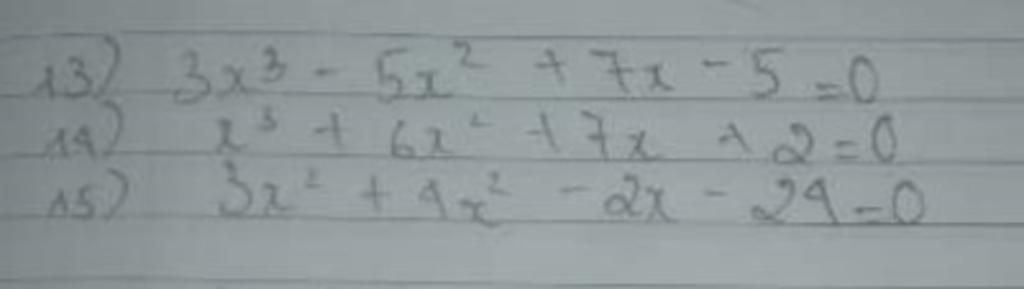 13) 3x³ - 5x² + 7x - 5 = 0
14) x³ + 6x² + 7x + 2 = 0
15) 3x² + 4x² - 2x - 24 = 0